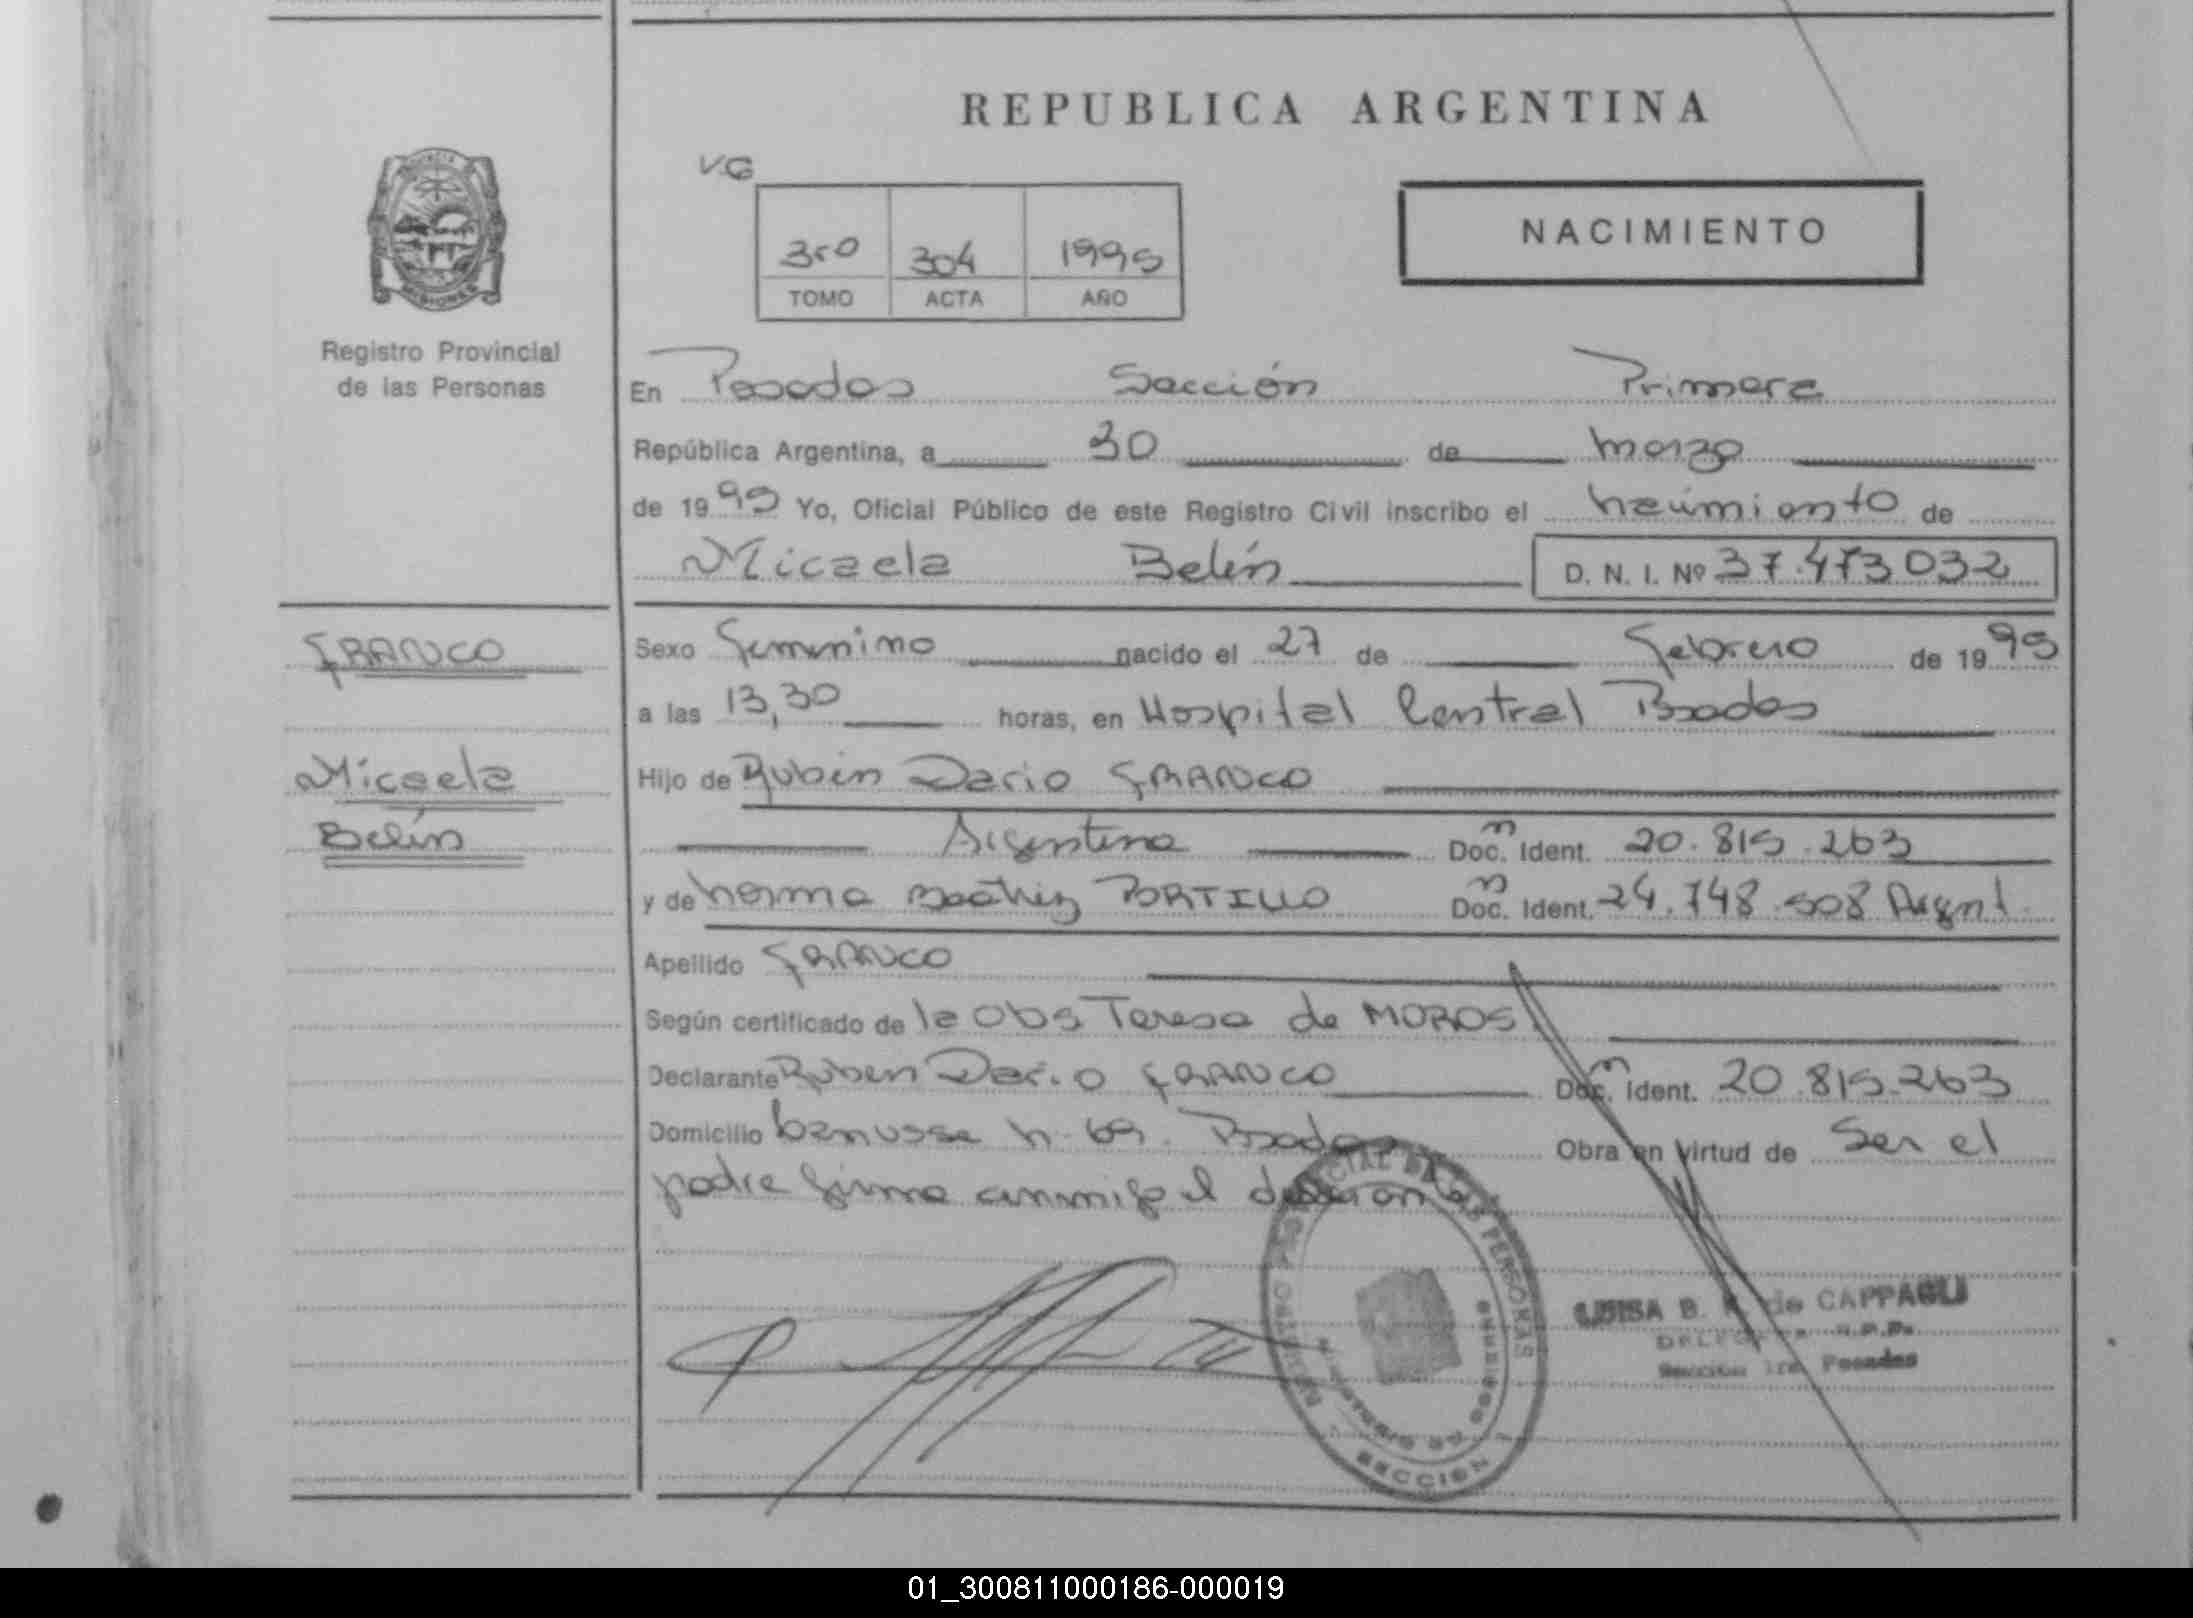 REPUBLICA ARGENTINA
VG
NACIMIENTO
3ro 304 1995
TOMO ACTA AÑO
MISIONES
Registro Provincial
de las Personas
En Posadas Sección Primera
República Argentina, a 30 de marzo
de 1995 Yo, Oficial Público de este Registro Civil inscribo el nacimiento de
Micaela Belén D. N. I. Nº 37.473032
FRANCO
Sexo Femenino nacido el 27 de Febrero de 1995
a las 13,30 horas, en Hospital Central Posadas
Micaela
Belén
Hijo de Rubén Dario FRANCO
Argentina Doc. Ident. 20.815.263
y de Norma Beatriz PORTILLO Doc. Ident. 24.748.508 Argnt.
Apellido FRANCO
Según certificado de la Obs Teresa de MOROS
Declarante Ruben Dario FRANCO Doc. Ident. 20.815.263
Domicilio n- 69. Posadas Obra en virtud de Ser el
padre firma conmigo el
LUISA B. de CAPPAGLI
DELEGADA R.P.P.
Sección 1ra Posadas
SECCION 1
01_300811000186-000019